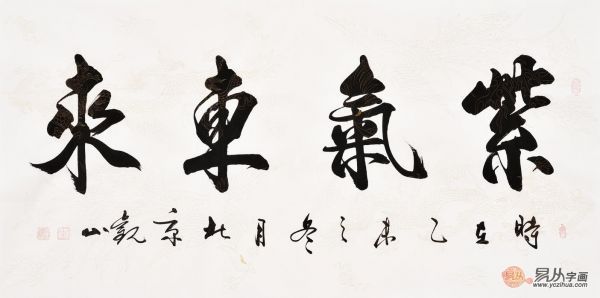 紫氣東來
時在乙未之冬月於京觀山
易从字画
www.yczihua.com